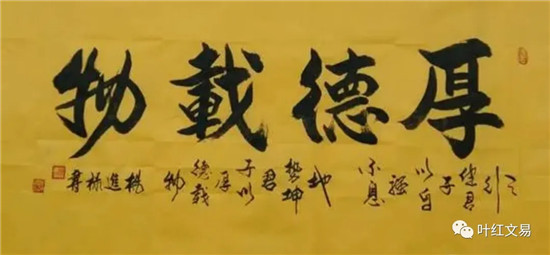 厚德載物
天行健君子以自强不息地勢坤君子以厚德载物
楊進書
叶红文易